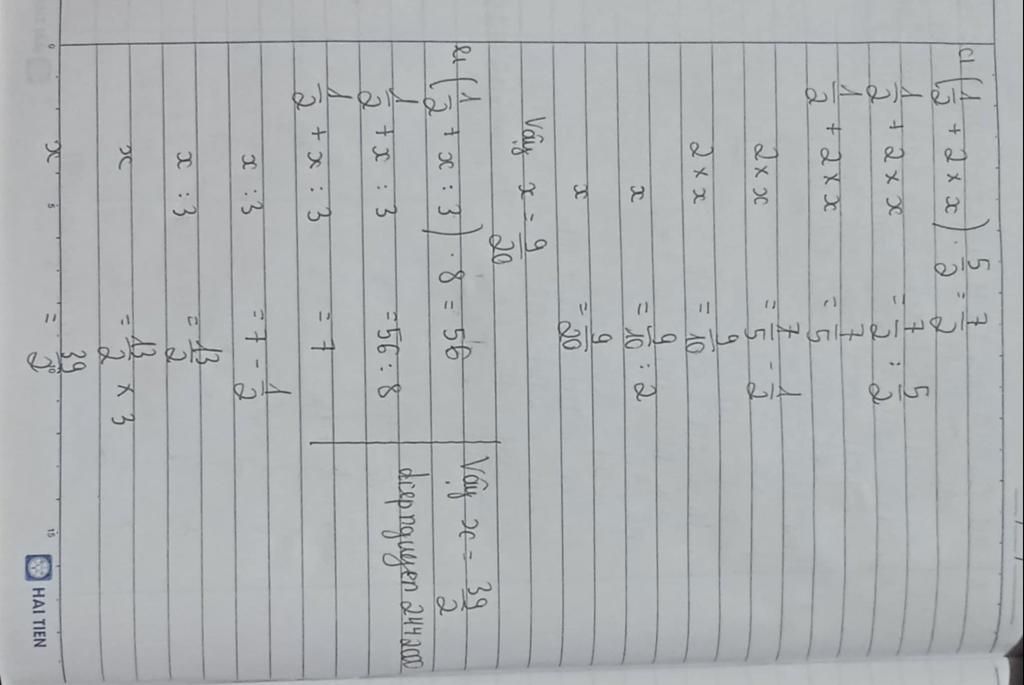 c) (1/2 + 2 × x) · 5/2 = 7/2
1/2 + 2 × x = 7/2 : 5/2
1/2 + 2 × x = 7/5
2 × x = 7/5 - 1/2
2 × x = 9/10
x = 9/10 : 2
x = 9/20
Vậy x = 9/20
e) (1/2 + x : 3) · 8 = 56
1/2 + x : 3 = 56 : 8
1/2 + x : 3 = 7
x : 3 = 7 - 1/2
x : 3 = 13/2
x = 13/2 × 3
x = 39/2
Vậy x = 39/2
diepnguyen244200
0 5 10 15
HAI TIEN